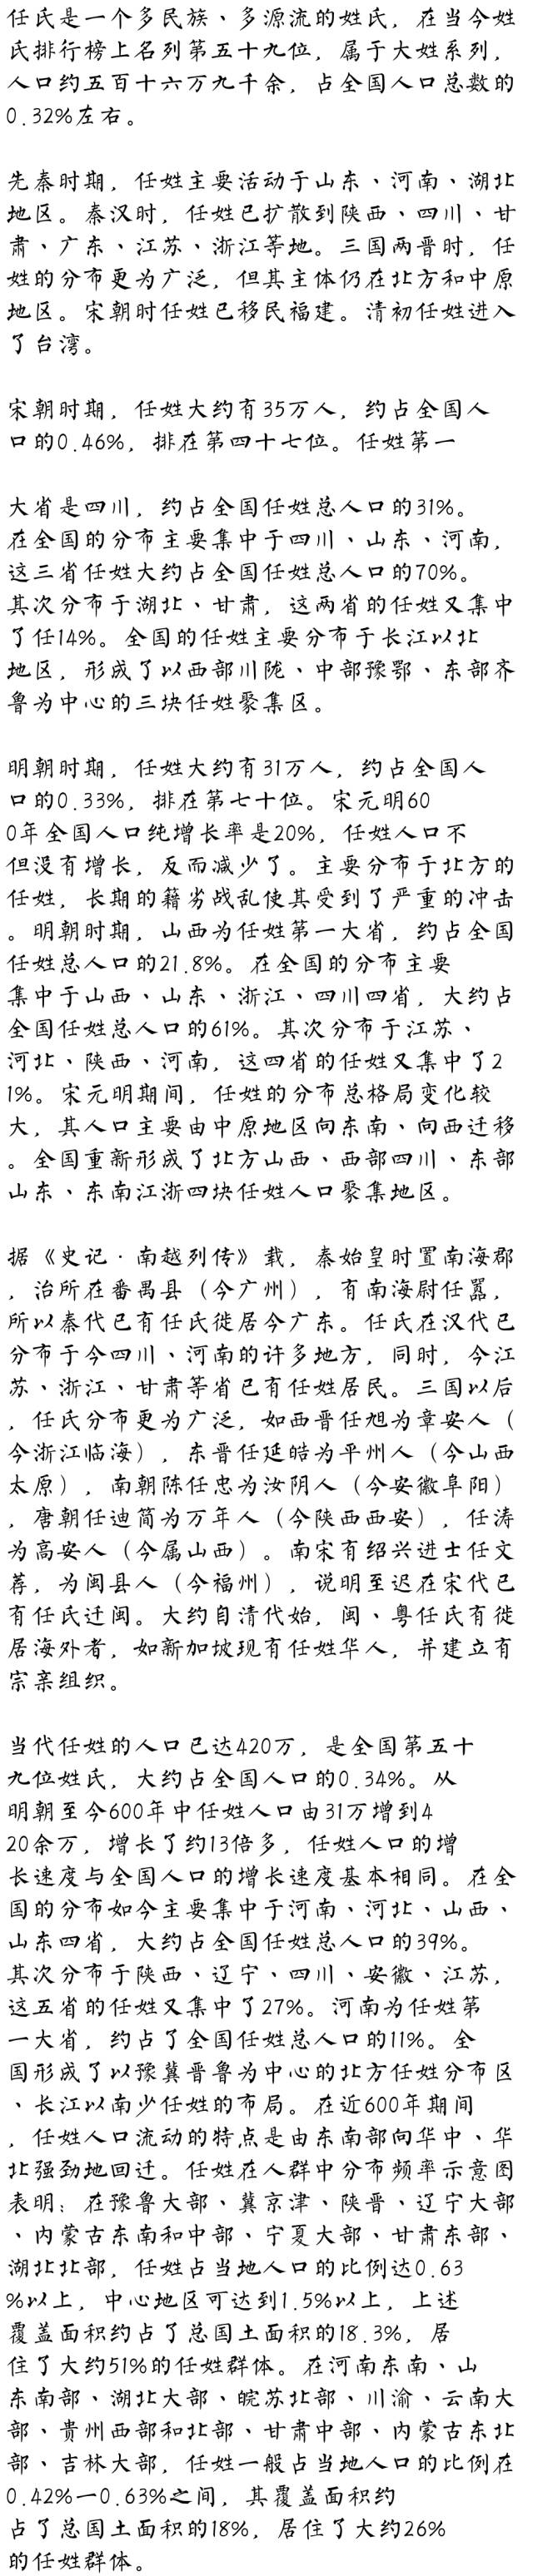 任氏是一个多民族、多源流的姓氏，在当今姓
氏排行榜上名列第五十九位，属于大姓系列，
人口约五百十六万九千余，占全国人口总数的
0.32%左右。
先秦时期，任姓主要活动于山东、河南、湖北
地区。秦汉时，任姓已扩散到陕西、四川、甘
肃、广东、江苏、浙江等地。三国两晋时，任
姓的分布更为广泛，但其主体仍在北方和中原
地区。宋朝时任姓已移民福建。清初任姓进入
了台湾。
宋朝时期，任姓大约有35万人，约占全国人
口的0.46%，排在第四十七位。任姓第一
大省是四川，约占全国任姓总人口的31%。
在全国的分布主要集中于四川、山东、河南，
这三省任姓大约占全国任姓总人口的70%。
其次分布于湖北、甘肃，这两省的任姓又集中
了任14%。全国的任姓主要分布于长江以北
地区，形成了以西部川陇、中部豫鄂、东部齐
鲁为中心的三块任姓聚集区。
明朝时期，任姓大约有31万人，约占全国人
口的0.33%，排在第七十位。宋元明60
0年全国人口纯增长率是20%，任姓人口不
但没有增长，反而减少了。主要分布于北方的
任姓，长期的籍劣战乱使其受到了严重的冲击
。明朝时期，山西为任姓第一大省，约占全国
任姓总人口的21.8%。在全国的分布主要
集中于山西、山东、浙江、四川四省，大约占
全国任姓总人口的61%。其次分布于江苏、
河北、陕西、河南，这四省的任姓又集中了2
1%。宋元明期间，任姓的分布总格局变化较
大，其人口主要由中原地区向东南、向西迁移
。全国重新形成了北方山西、西部四川、东部
山东、东南江浙四块任姓人口聚集地区。
据《史记·南越列传》载，秦始皇时置南海郡
，治所在番禺县（今广州），有南海尉任嚣，
所以秦代已有任氏徙居今广东。任氏在汉代已
分布于今四川、河南的许多地方，同时，今江
苏、浙江、甘肃等省已有任姓居民。三国以后
，任氏分布更为广泛，如西晋任旭为章安人（
今浙江临海），东晋任延皓为平州人（今山西
太原），南朝陈任忠为汝阴人（今安徽阜阳）
，唐朝任迪简为万年人（今陕西西安），任涛
为高安人（今属山西）。南宋有绍兴进士任文
荐，为闽县人（今福州），说明至迟在宋代已
有任氏迁闽。大约自清代始，闽、粤任氏有徙
居海外者，如新加坡现有任姓华人，并建立有
宗亲组织。
当代任姓的人口已达420万，是全国第五十
九位姓氏，大约占全国人口的0.34%。从
明朝至今600年中任姓人口由31万增到4
20余万，增长了约13倍多，任姓人口的增
长速度与全国人口的增长速度基本相同。在全
国的分布如今主要集中于河南、河北、山西、
山东四省，大约占全国任姓总人口的39%。
其次分布于陕西、辽宁、四川、安徽、江苏，
这五省的任姓又集中了27%。河南为任姓第
一大省，约占了全国任姓总人口的11%。全
国形成了以豫冀晋鲁为中心的北方任姓分布区
、长江以南少任姓的布局。在近600年期间
，任姓人口流动的特点是由东南部向华中、华
北强劲地回迁。任姓在人群中分布频率示意图
表明：在豫鲁大部、冀京津、陕晋、辽宁大部
、内蒙古东南和中部、宁夏大部、甘肃东部、
湖北北部，任姓占当地人口的比例达0.63
%以上，中心地区可达到1.5%以上，上述
覆盖面积约占了总国土面积的18.3%，居
住了大约51%的任姓群体。在河南东南、山
东南部、湖北大部、皖苏北部、川渝、云南大
部、贵州西部和北部、甘肃中部、内蒙古东北
部、吉林大部，任姓一般占当地人口的比例在
0.42%一0.63%之间，其覆盖面积约
占了总国土面积的18%，居住了大约26%
的任姓群体。